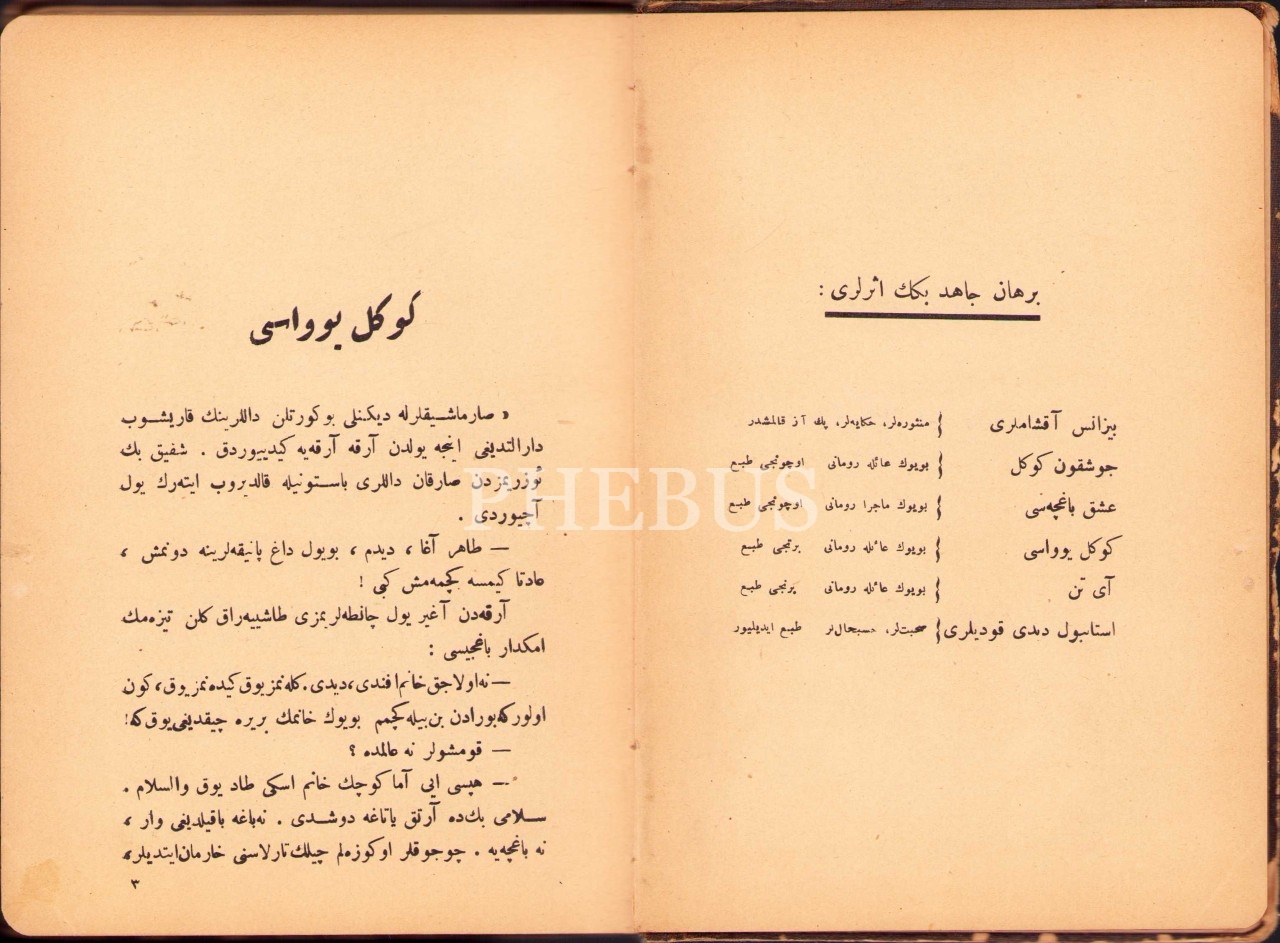 برهان جاهد بكك اثرلری :
بیزانس آقشاملری { منثوره‌لر، حكایه‌لر، پك آز قالمشدر
جوشقون كوكل { بویوك عائله رومانی اوچونجی طبع
عشق باغچه‌سی { بویوك ماجرا رومانی اوچونجی طبع
كوكل یوواسی { بویوك عائله رومانی برنجی طبع
آی تن { بویوك عائله رومانی برنجی طبع
استانبول دیدی قودیلری { صحبتلر، حسبحاللر طبع ایدیلیور
كوكل یوواسی
« صارماشیقلرله دیكنلی بوكورتلن داللرینك قاریشوب
دارالتدیغی اینجه یولدن آرقه آرقه‌یه كیدییوردق . شفیق بك
ئوزریمزدن صارقان داللری باستونیله قالدیروب ایته‌رك یول
آچیوردی .
— طاهر آغا ، دیدم ، بویول داغ پاتیقه‌لرینه دونمش ،
عادتا كیمسه كچمه‌مش كبی !
آرقه‌دن آغیر یول چانطه‌لریمزی طاشییه‌راق كلن تیزه‌مك
امكدار باغجیسی :
— نه‌اولاجق خانم‌افندی ، دیدی . كله‌نمز یوق كیده‌نمز یوق ، كون
اولور كه بورادن بن بیله كچمم بویوك خانمك بریره چیقدیغی یوق كه !
— قومشولر نه عالمده ؟
— هپسی ایی آما كوچك خانم اسكی طاد یوق والسلام .
سلامی بك‌ده آرتق یاتاغه دوشدی . نه‌باغه باقیلدیغی وار ،
نه باغچه‌یه . چوجوقلر اوكوزه‌لم چیلك تارلاسنی خارمان ایتدیلر ،
٣
PHEBUS